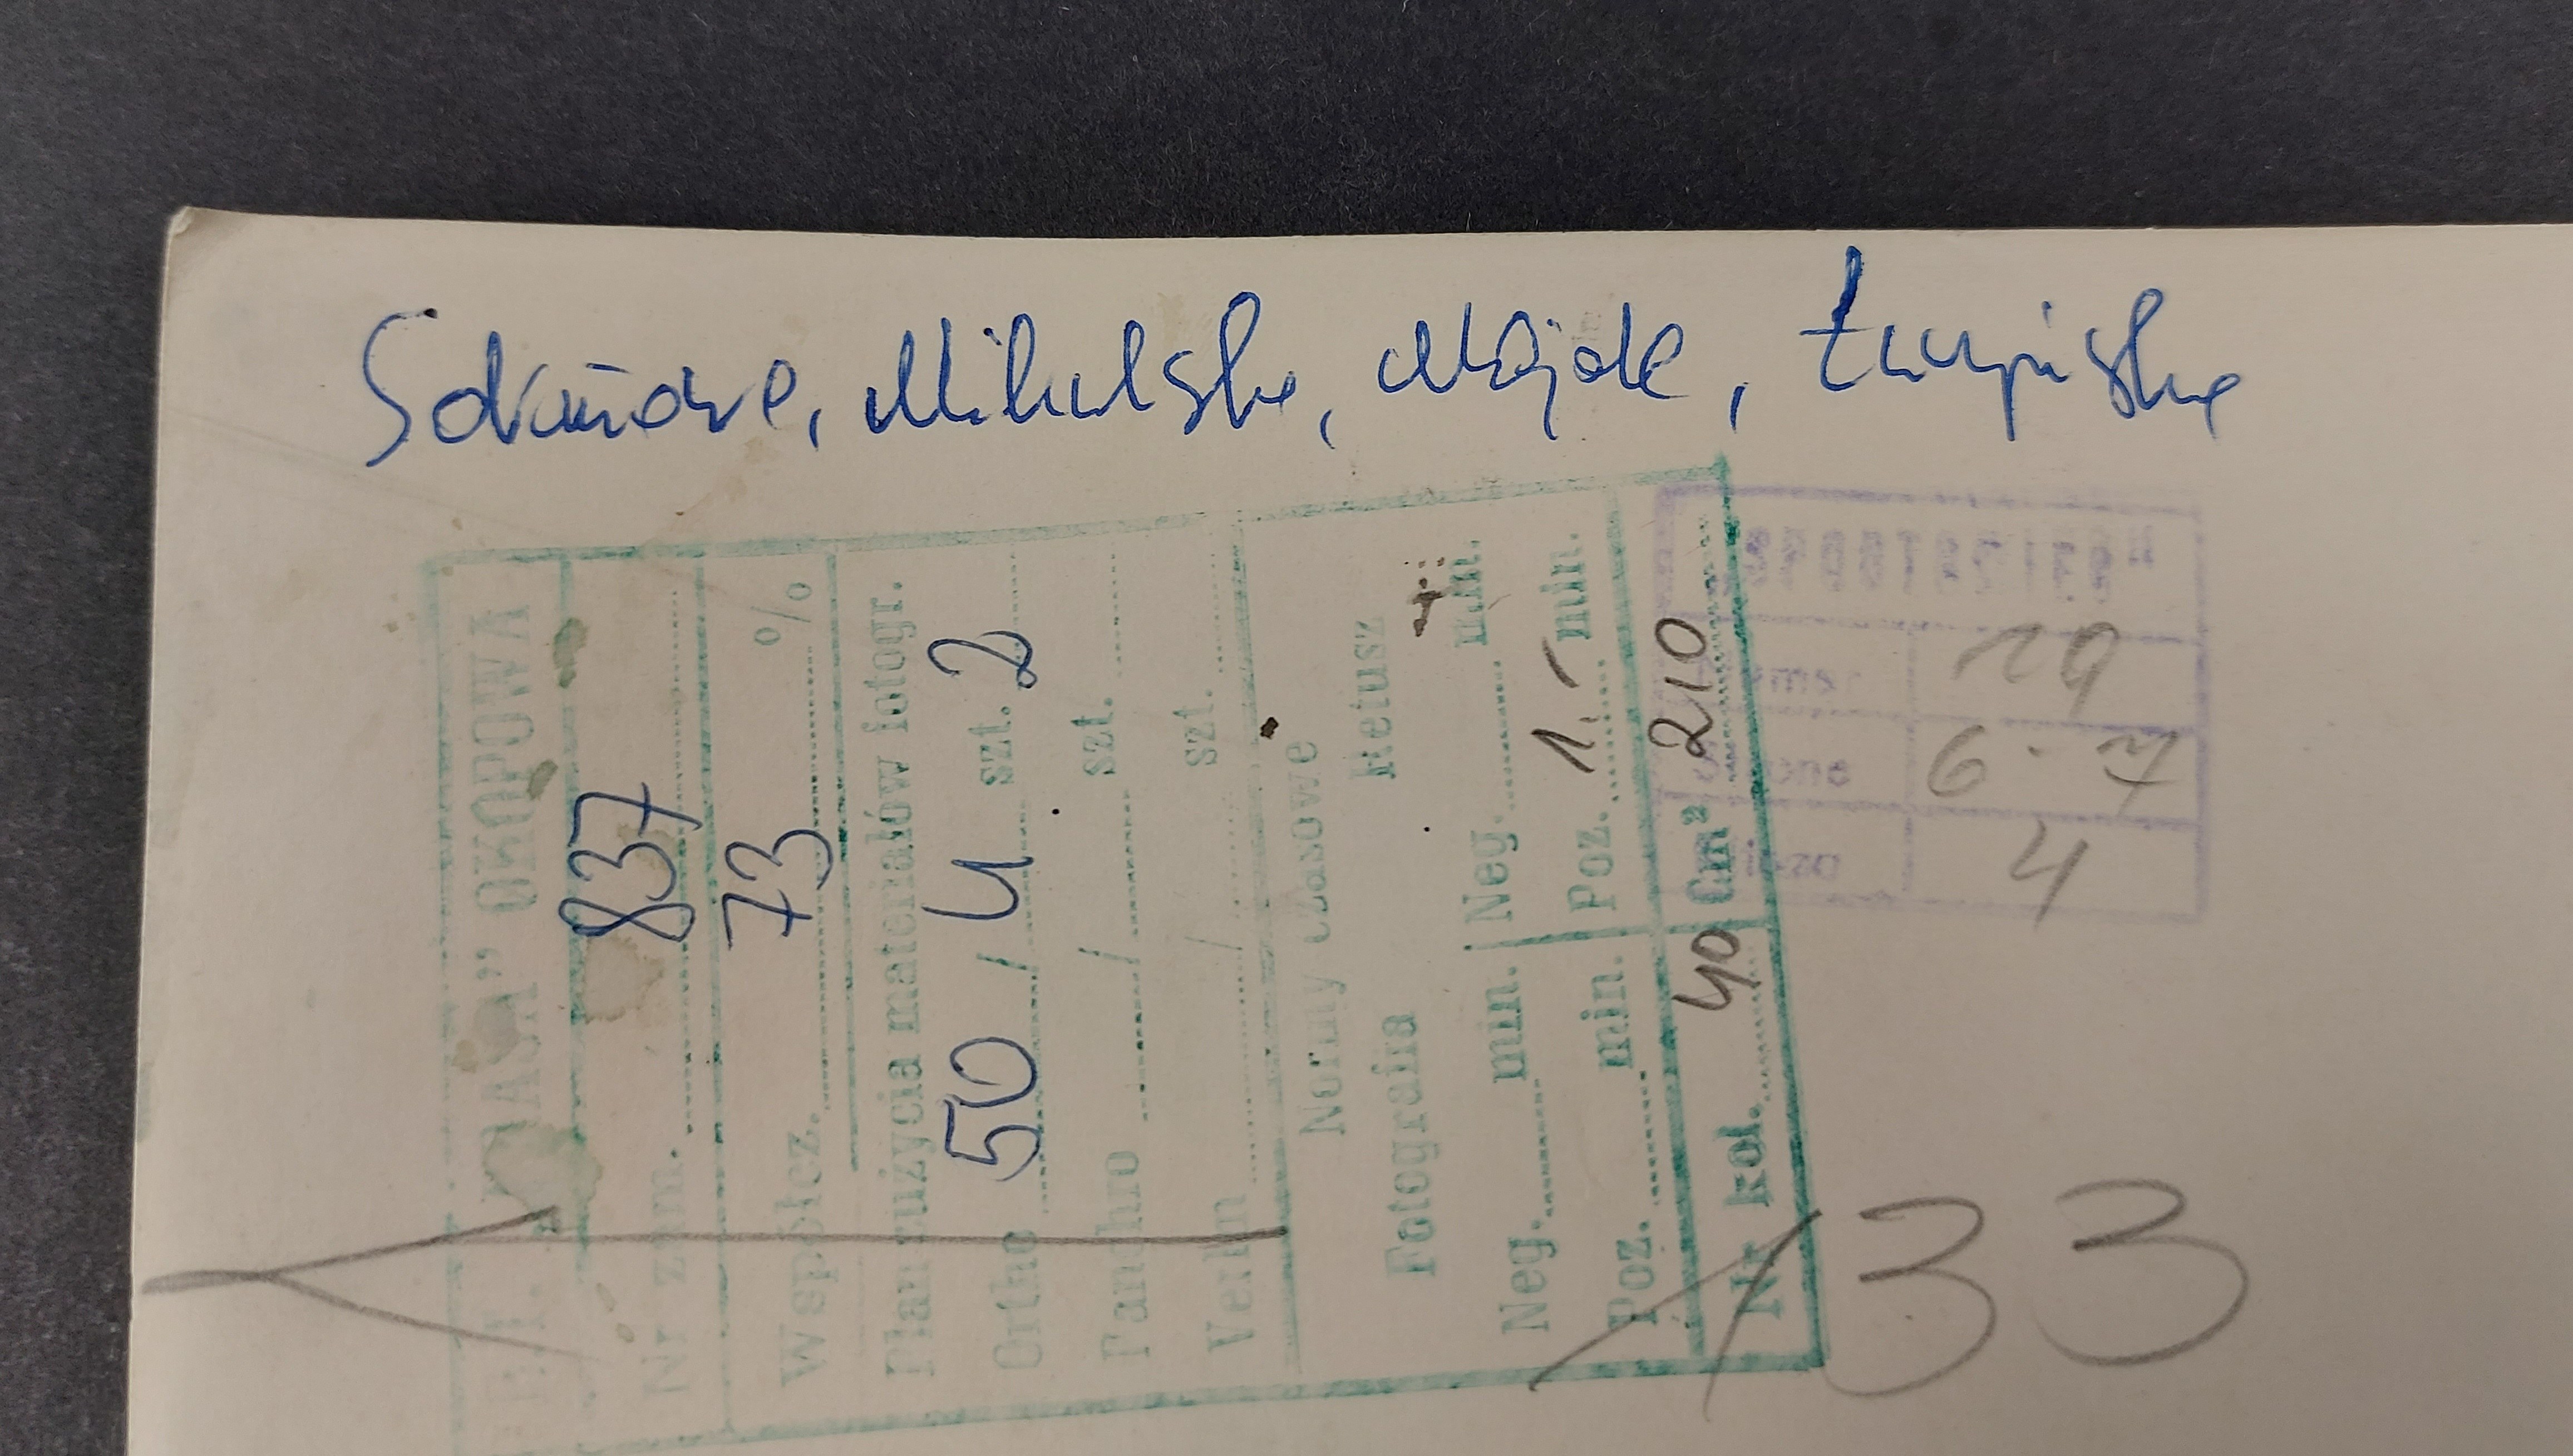 Mikulska,
"PRASA" OKOPOWA
Nr zam. 837
Współcz. 73 %
Plan zużycia materiałów fotogr.
Ortho 50 / 4 szt. 2
Panchro / szt.
/ szt.
Normy czasowe
Fotografia Retusz
Neg. min. Neg. min.
Poz. min. Poz. 1.- min.
Nr kol. 40 Cm² 210
Numer 19
Strona 6-7
4
133